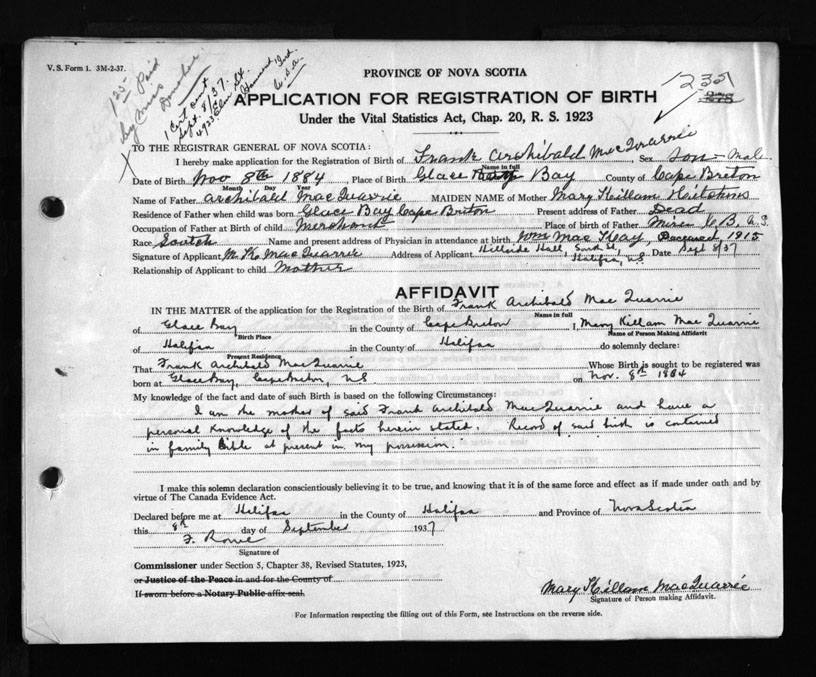 V. S. Form 1. 3M-2-37.
1.25 Paid
by Miss
Donahoe
1 Cert out
Sept 8/37.
4923 Elm St.
Hammond Ind.
U.S.A.
PROVINCE OF NOVA SCOTIA
1235
APPLICATION FOR REGISTRATION OF BIRTH
Under the Vital Statistics Act, Chap. 20, R. S. 1923
TO THE REGISTRAR GENERAL OF NOVA SCOTIA:
I hereby make application for the Registration of Birth of Frank Archibald MacQuarrie Sex Son - Male
Name in full
Date of Birth Nov 8th 1884 Place of Birth Glace Bay County of Cape Breton
Month Day Year
Name of Father Archibald MacQuarrie MAIDEN NAME of Mother Mary Killam Hitchens
Residence of Father when child was born Glace Bay Cape Breton Present address of Father Dead
Occupation of Father at Birth of child Merchant Place of birth of Father Mira C. B., N.S.
Race Scotch Name and present address of Physician in attendance at birth Wm MacKay, Deceased, 1915
Signature of Applicant M. K. MacQuarrie Address of Applicant Hillside Hall, South St, Halifax, N.S. Date Sept 8/37
Relationship of Applicant to child Mother
AFFIDAVIT
IN THE MATTER of the application for the Registration of the Birth of Frank Archibald MacQuarrie
Name in full
of Glace Bay in the County of Cape Breton I, Mary Killam MacQuarrie
Birth Place Name of Person Making Affidavit
of Halifax in the County of Halifax do solemnly declare:
Present Residence
That Frank Archibald MacQuarrie Whose Birth is sought to be registered was
born at Glace Bay, Cape Breton, N.S on Nov. 8th 1884
My knowledge of the fact and date of such Birth is based on the following Circumstances:
I am the mother of said Frank Archibald MacQuarrie and have a
personal knowledge of the facts herein stated. Record of said birth is contained
in family Bible at present in my possession.
I make this solemn declaration conscientiously believing it to be true, and knowing that it is of the same force and effect as if made under oath and by
virtue of The Canada Evidence Act.
Declared before me at Halifax in the County of Halifax and Province of Nova Scotia
this 8th day of September 1937
F. Rowe
Signature of
Commissioner under Section 5, Chapter 38, Revised Statutes, 1923,
or Justice of the Peace in and for the County of
If sworn before a Notary Public affix seal.
Mary Killam MacQuarrie
Signature of Person making Affidavit.
For Information respecting the filling out of this Form, see Instructions on the reverse side.